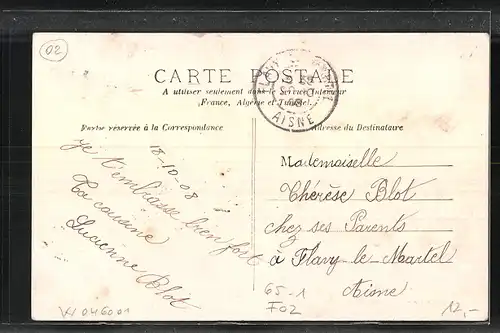 02
CARTE POSTALE
A utiliser seulement dans le Service Intérieur
(France, Algérie et Tunisie).
AISNE
Partie réservée à la Correspondance
Adresse du Destinataire
18-10-08
Je t'embrasse bien fort
Ta cousine
Lucienne Blot
Mademoiselle
Thérèse Blot
chez ses Parents
à Flavy-le-Martel
Aisne
65-1
F02
046001
12,-